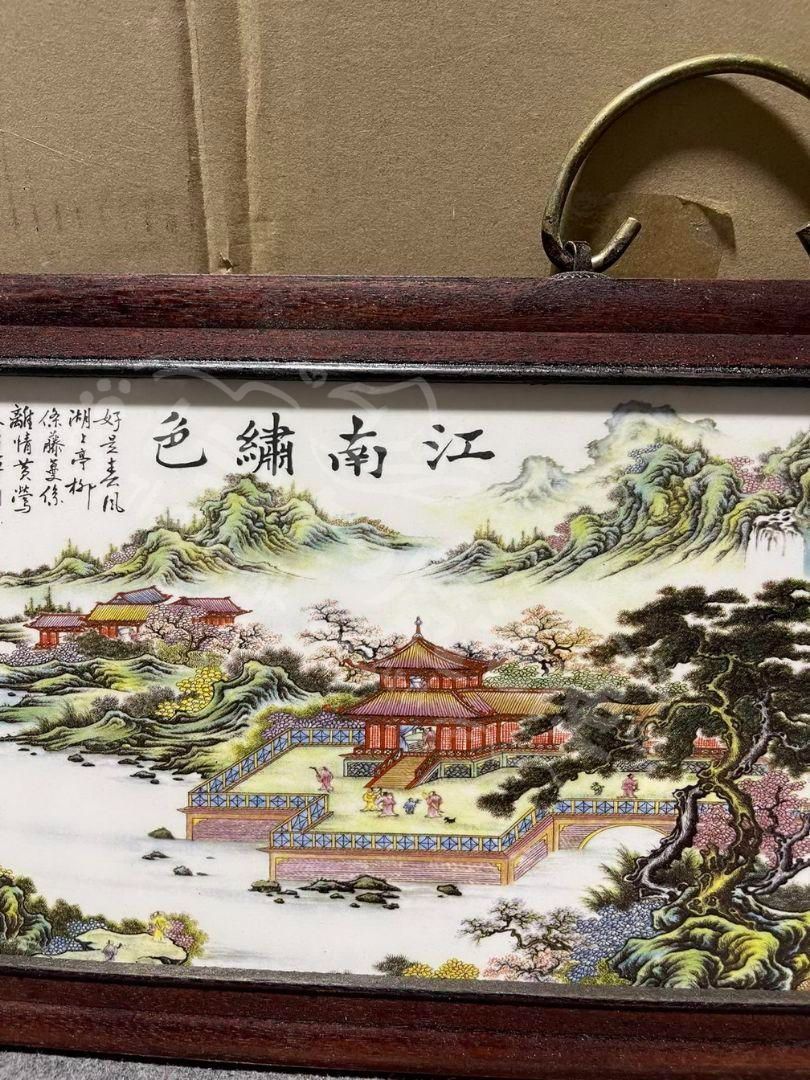 江南繡色
好是春風
湖上亭柳
條藤蔓係
離情黃鶯